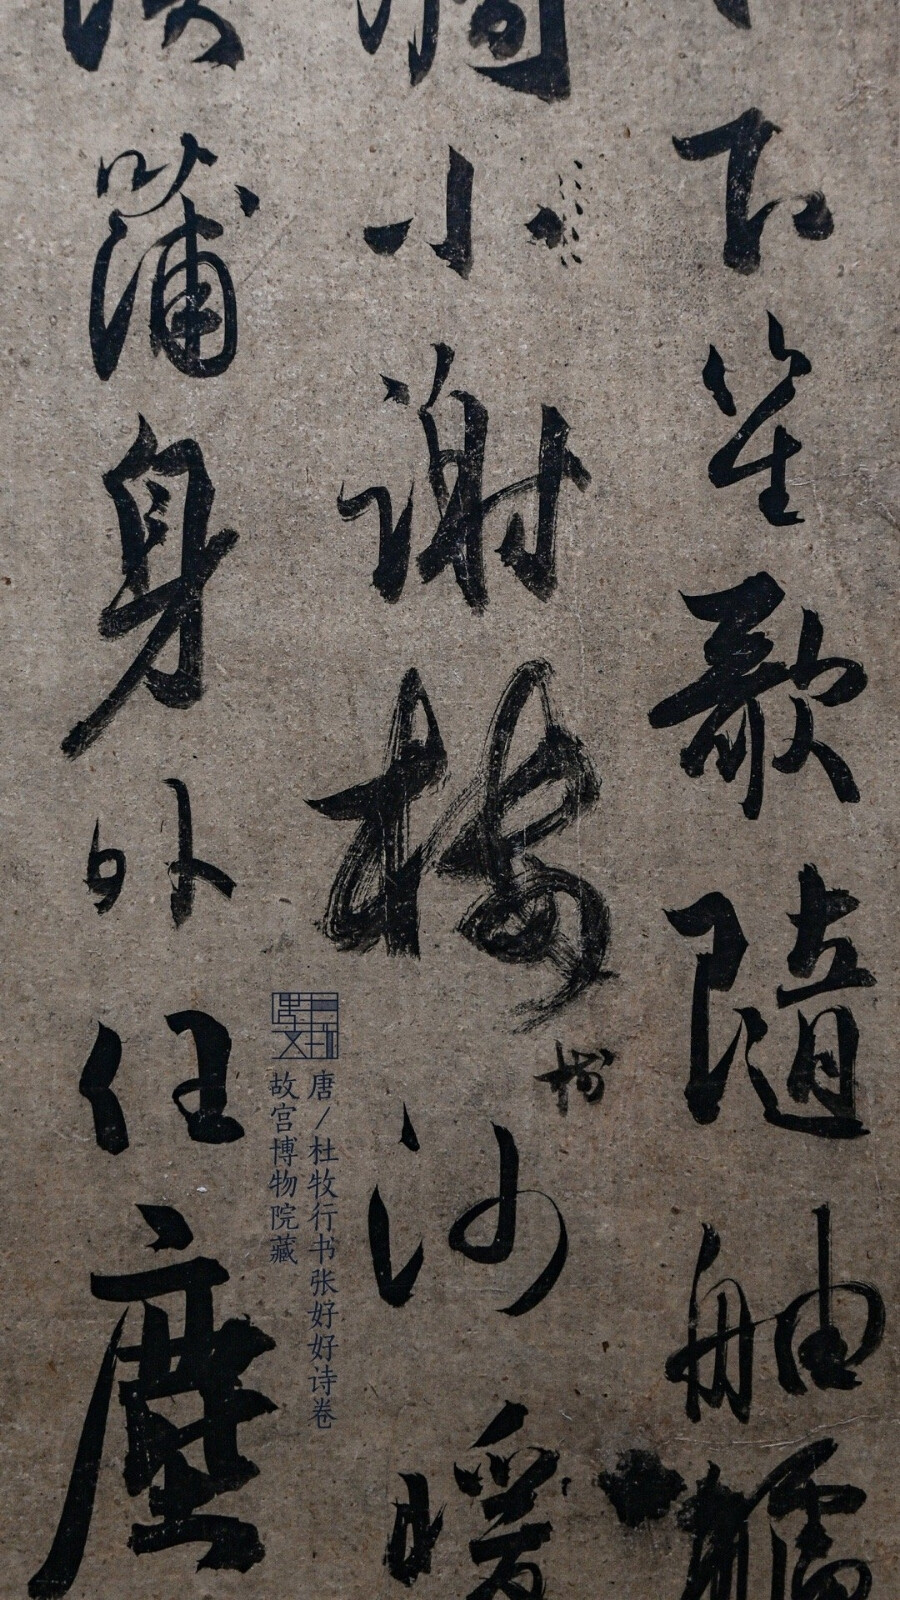 下笙歌隨舳艫
凋小謝樹樓沙暖
蒲身外任塵
唐/杜牧行书张好好诗卷
故宫博物院藏